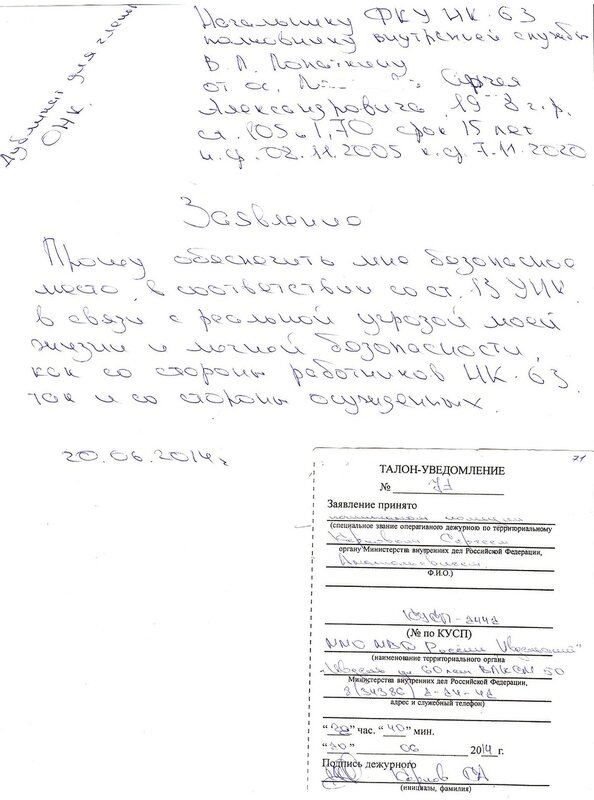 Дубликат для члена
ОНК.
Начальнику ФКУ ИК-63
полковнику внутренней службы
В.П. Лопаткину
от ос. Сергея
Александровича 19 8 г.р.
ст. 105 ч. 1, 70 срок 15 лет
н.ср. 02.11.2005 к.ср 7.11.2020
Заявление
Прошу обеспечить мне безопасное
место в соответствии со ст. 13 УИК
в связи с реальной угрозой моей
жизни и личной безопасности,
как со стороны работников ИК-63
так и со стороны осужденных.
20.06.2014г
71
ТАЛОН-УВЕДОМЛЕНИЕ
№ 71
Заявление принято
полиции
(специальное звание оперативного дежурного по территориальному
Сергеем
органу Министерства внутренних дел Российской Федерации,
Анатольевичем
Ф.И.О.)
КУСП-2442
(№ по КУСП)
ММО МВД России "Ивдельский"
(наименование территориального органа
Ивдель ул 60 лет ВЛКСМ 50
Министерства внутренних дел Российской Федерации,
8(34386) 2-24-42
адрес и служебный телефон)
"20" час. "40" мин.
"20" 06 2014 г.
Подпись дежурного
(инициалы, фамилия)